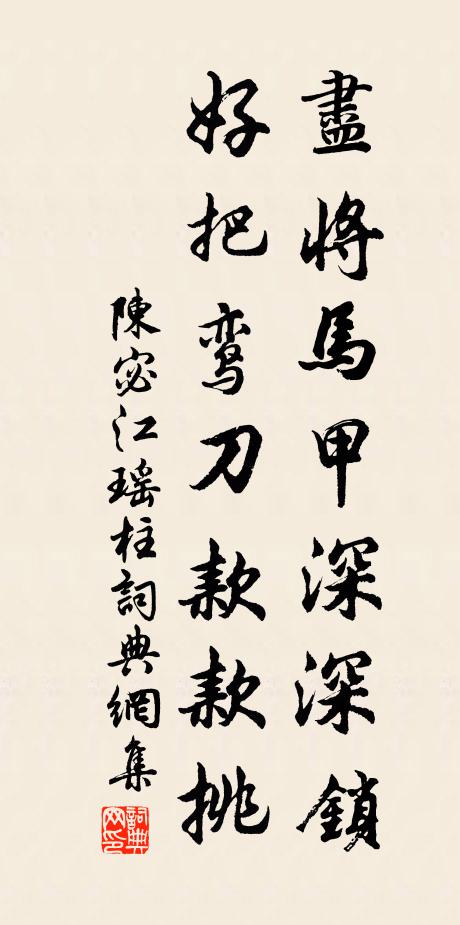 盡將馬甲深深鎖
好把鸾刀款款挑
陳宓江瑶柱詞典網集
詞典網印